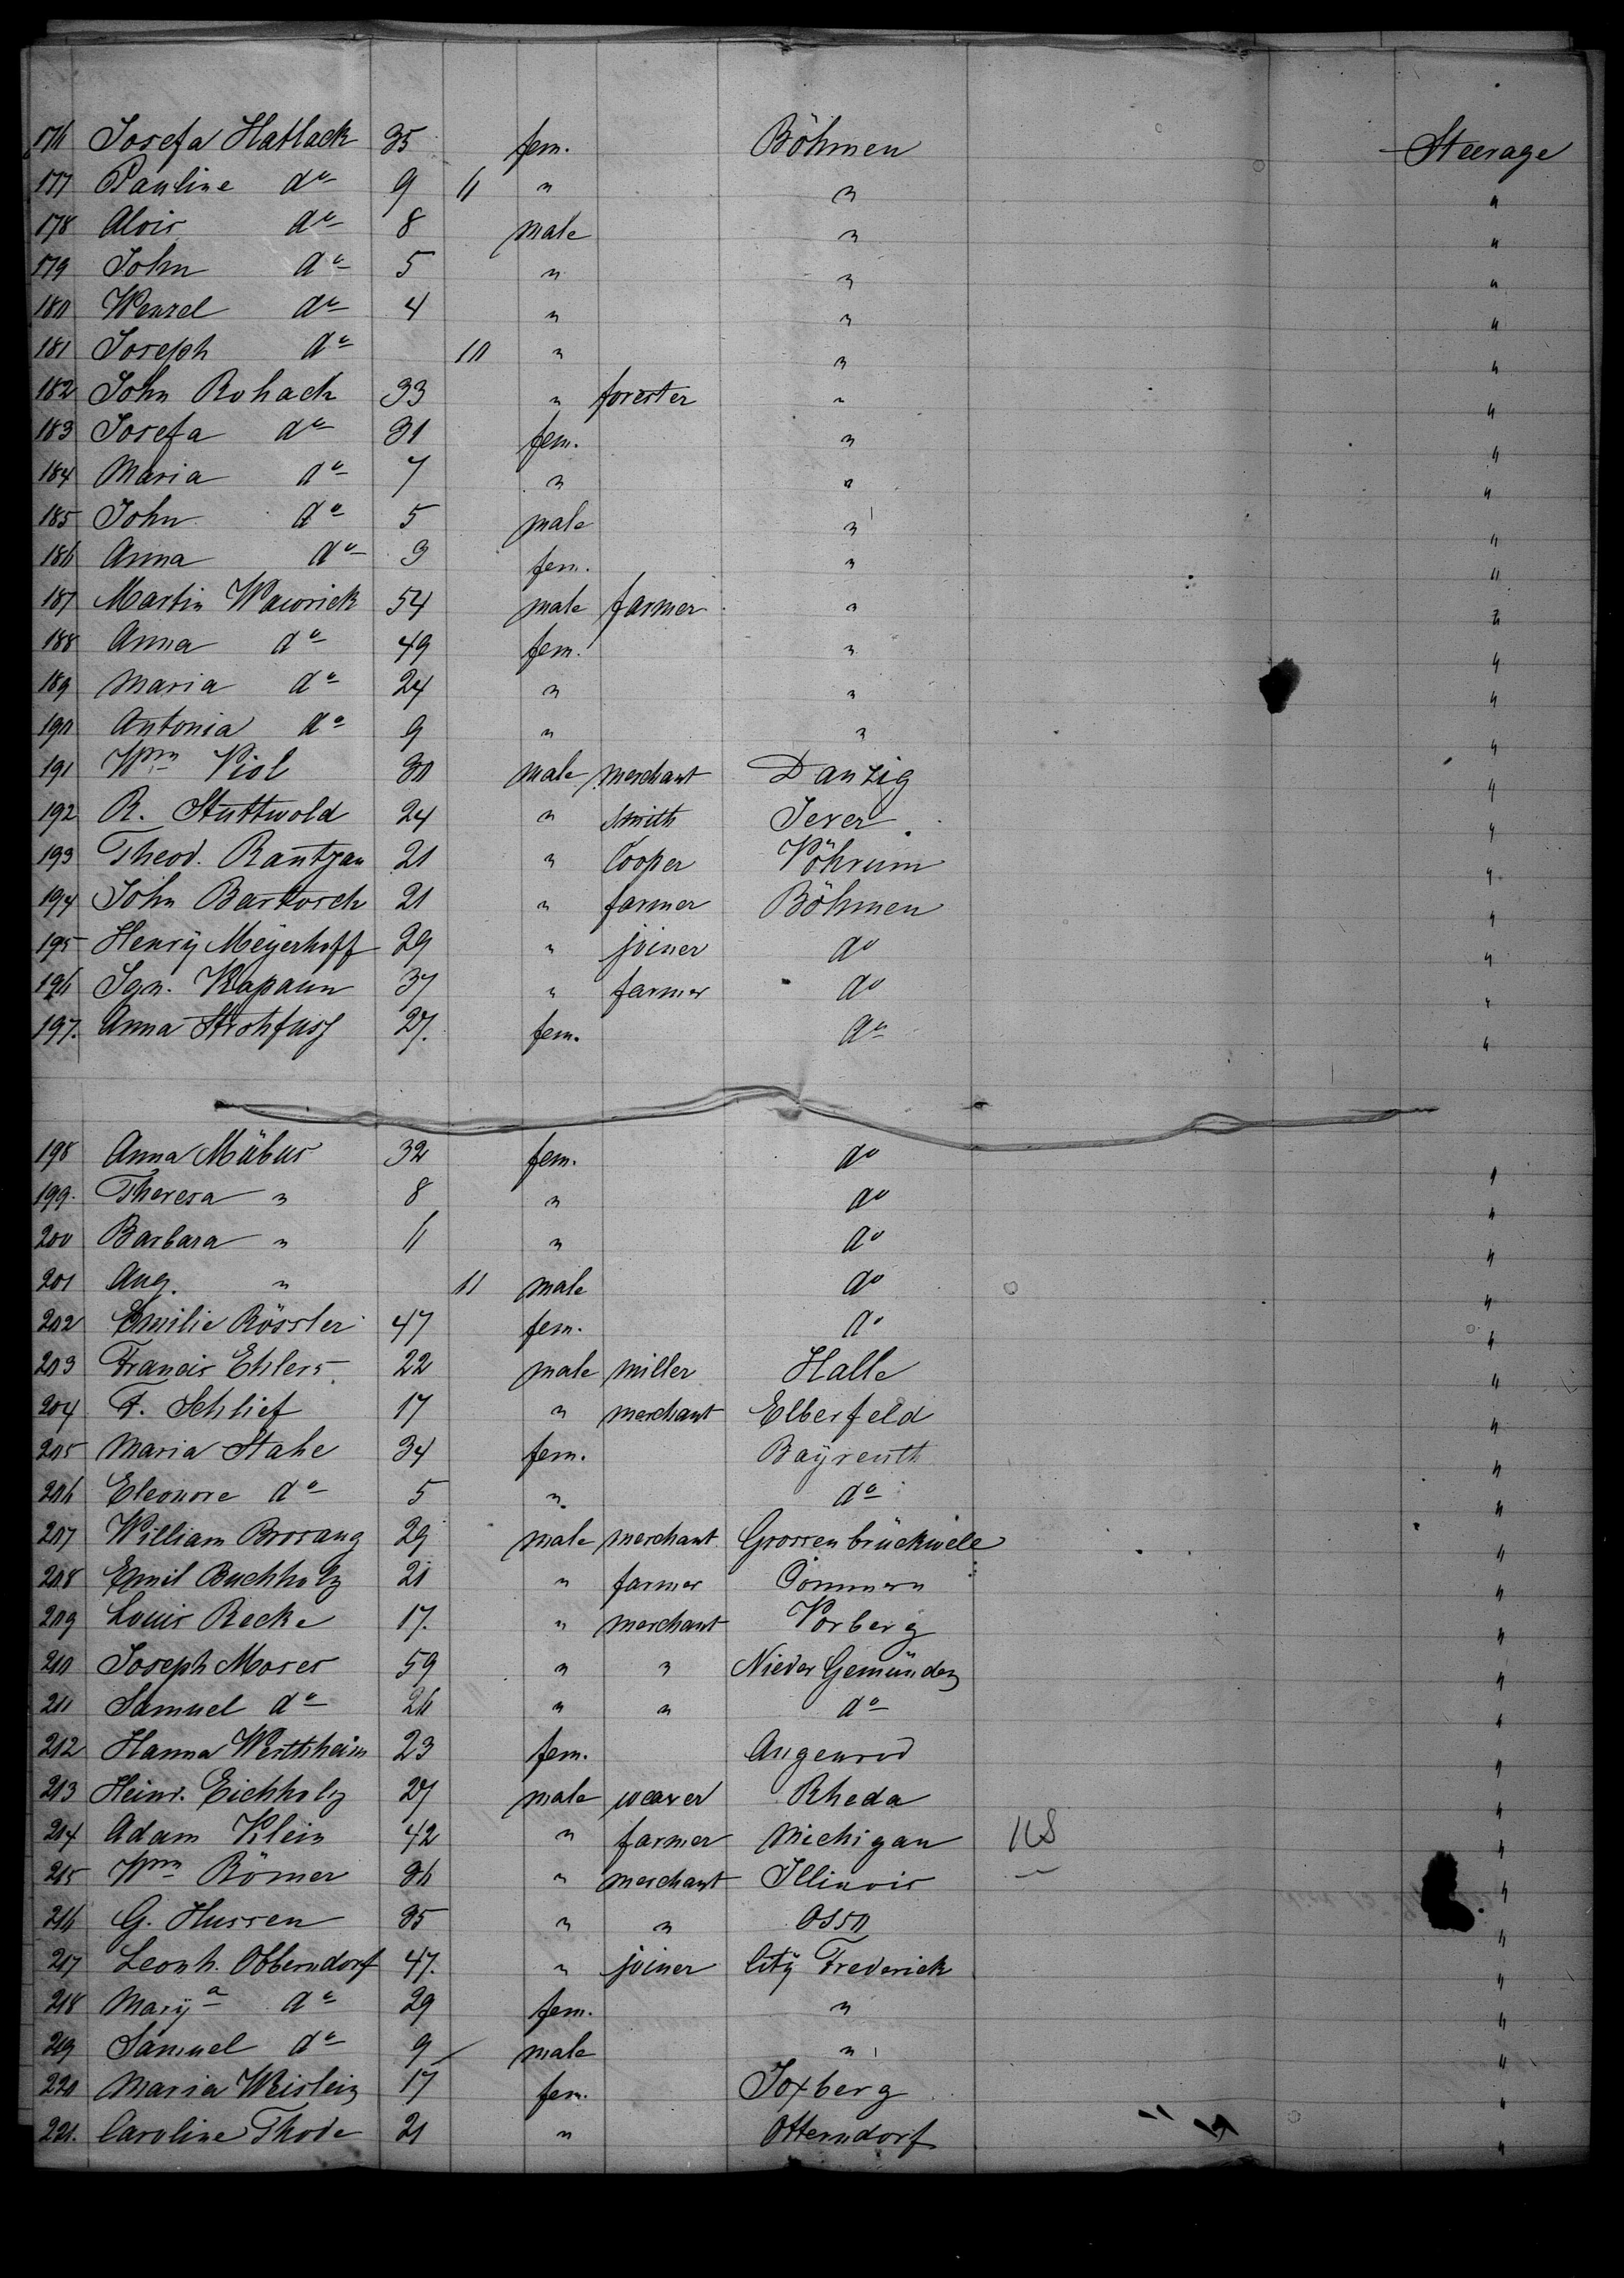 176 Josefa Hatlack 35 fem. Böhmen Steerage
177 Pauline do 9 11 " " "
178 Alois do 8 male " "
179 John do 5 " " "
180 Wenzel do 4 " " "
181 Joseph do 10 " " "
182 John Rohack 33 " forester " "
183 Josefa do 31 fem. " "
184 Maria do 7 " " "
185 John do 5 male " "
186 Anna do 3 fem. " "
187 Martin Wawrick 54 male farmer " "
188 Anna do 49 fem. " "
189 Maria do 24 " " "
190 Antonia do 9 " " "
191 Wm Viol 30 male merchant Danzig "
192 R. Stuttwold 24 " smith Jever "
193 Theod. Rantzau 21 " Cooper Vöhrum "
194 John Bartosch 21 " farmer Böhmen "
195 Henry Meyerhoff 29 " joiner do "
196 Ign. Kapaun 37 " farmer do "
197. Anna Strohfuss 27. fem. do "
198 Anna Mäbus 32 fem. do "
199. Theresa " 8 " do "
200 Barbara " 6 " do "
201 Aug. " 11 male do "
202 Emilie Rössler 47 fem. do "
203 Francis Ehlers 22 male miller Halle "
204 F. Schlief 17 " merchant Elberfeld "
205 Maria Stahe 34 fem. Bayreuth "
206 Eleonore do 5 " do "
207 William Brosang 29 male merchant "
208 Emil Buchholz 21 " farmer Pommern "
209 Louis Recke 17. " merchant Vorberg "
210 Joseph Moses 59 " " Nieder Gemünden "
211 Samuel do 26 " " do "
212 Hanna Werthheim 23 fem. Angenrod "
213 Heinr. Eichholz 27 male weaver Rheda "
214 Adam Klein 42 " farmer Michigan US "
215 Wm Römer 36 " merchant Illinois "
216 G. Hussen 35 " " "
217 Leonh. Obberndorf 47. " joiner City Frederick "
218 Mary a do 29 fem. " "
219 Samuel do 9 male " "
220 Maria Weislein 17 fem. Joxberg "
221. Caroline Thode 21 " Otterndorf "